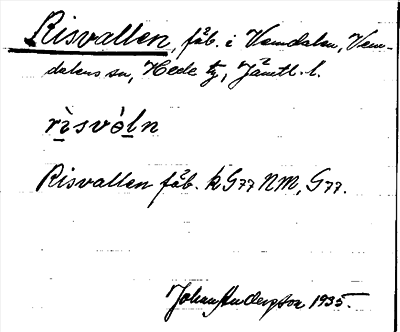 Risvallen, fäb. i Vemdalen, Vem-
dalens sn, Hede tg, Jämtl. l.
rìsvòln
Risvallen fäb. k G77 NM, G77.
Johan Andersson 1935.